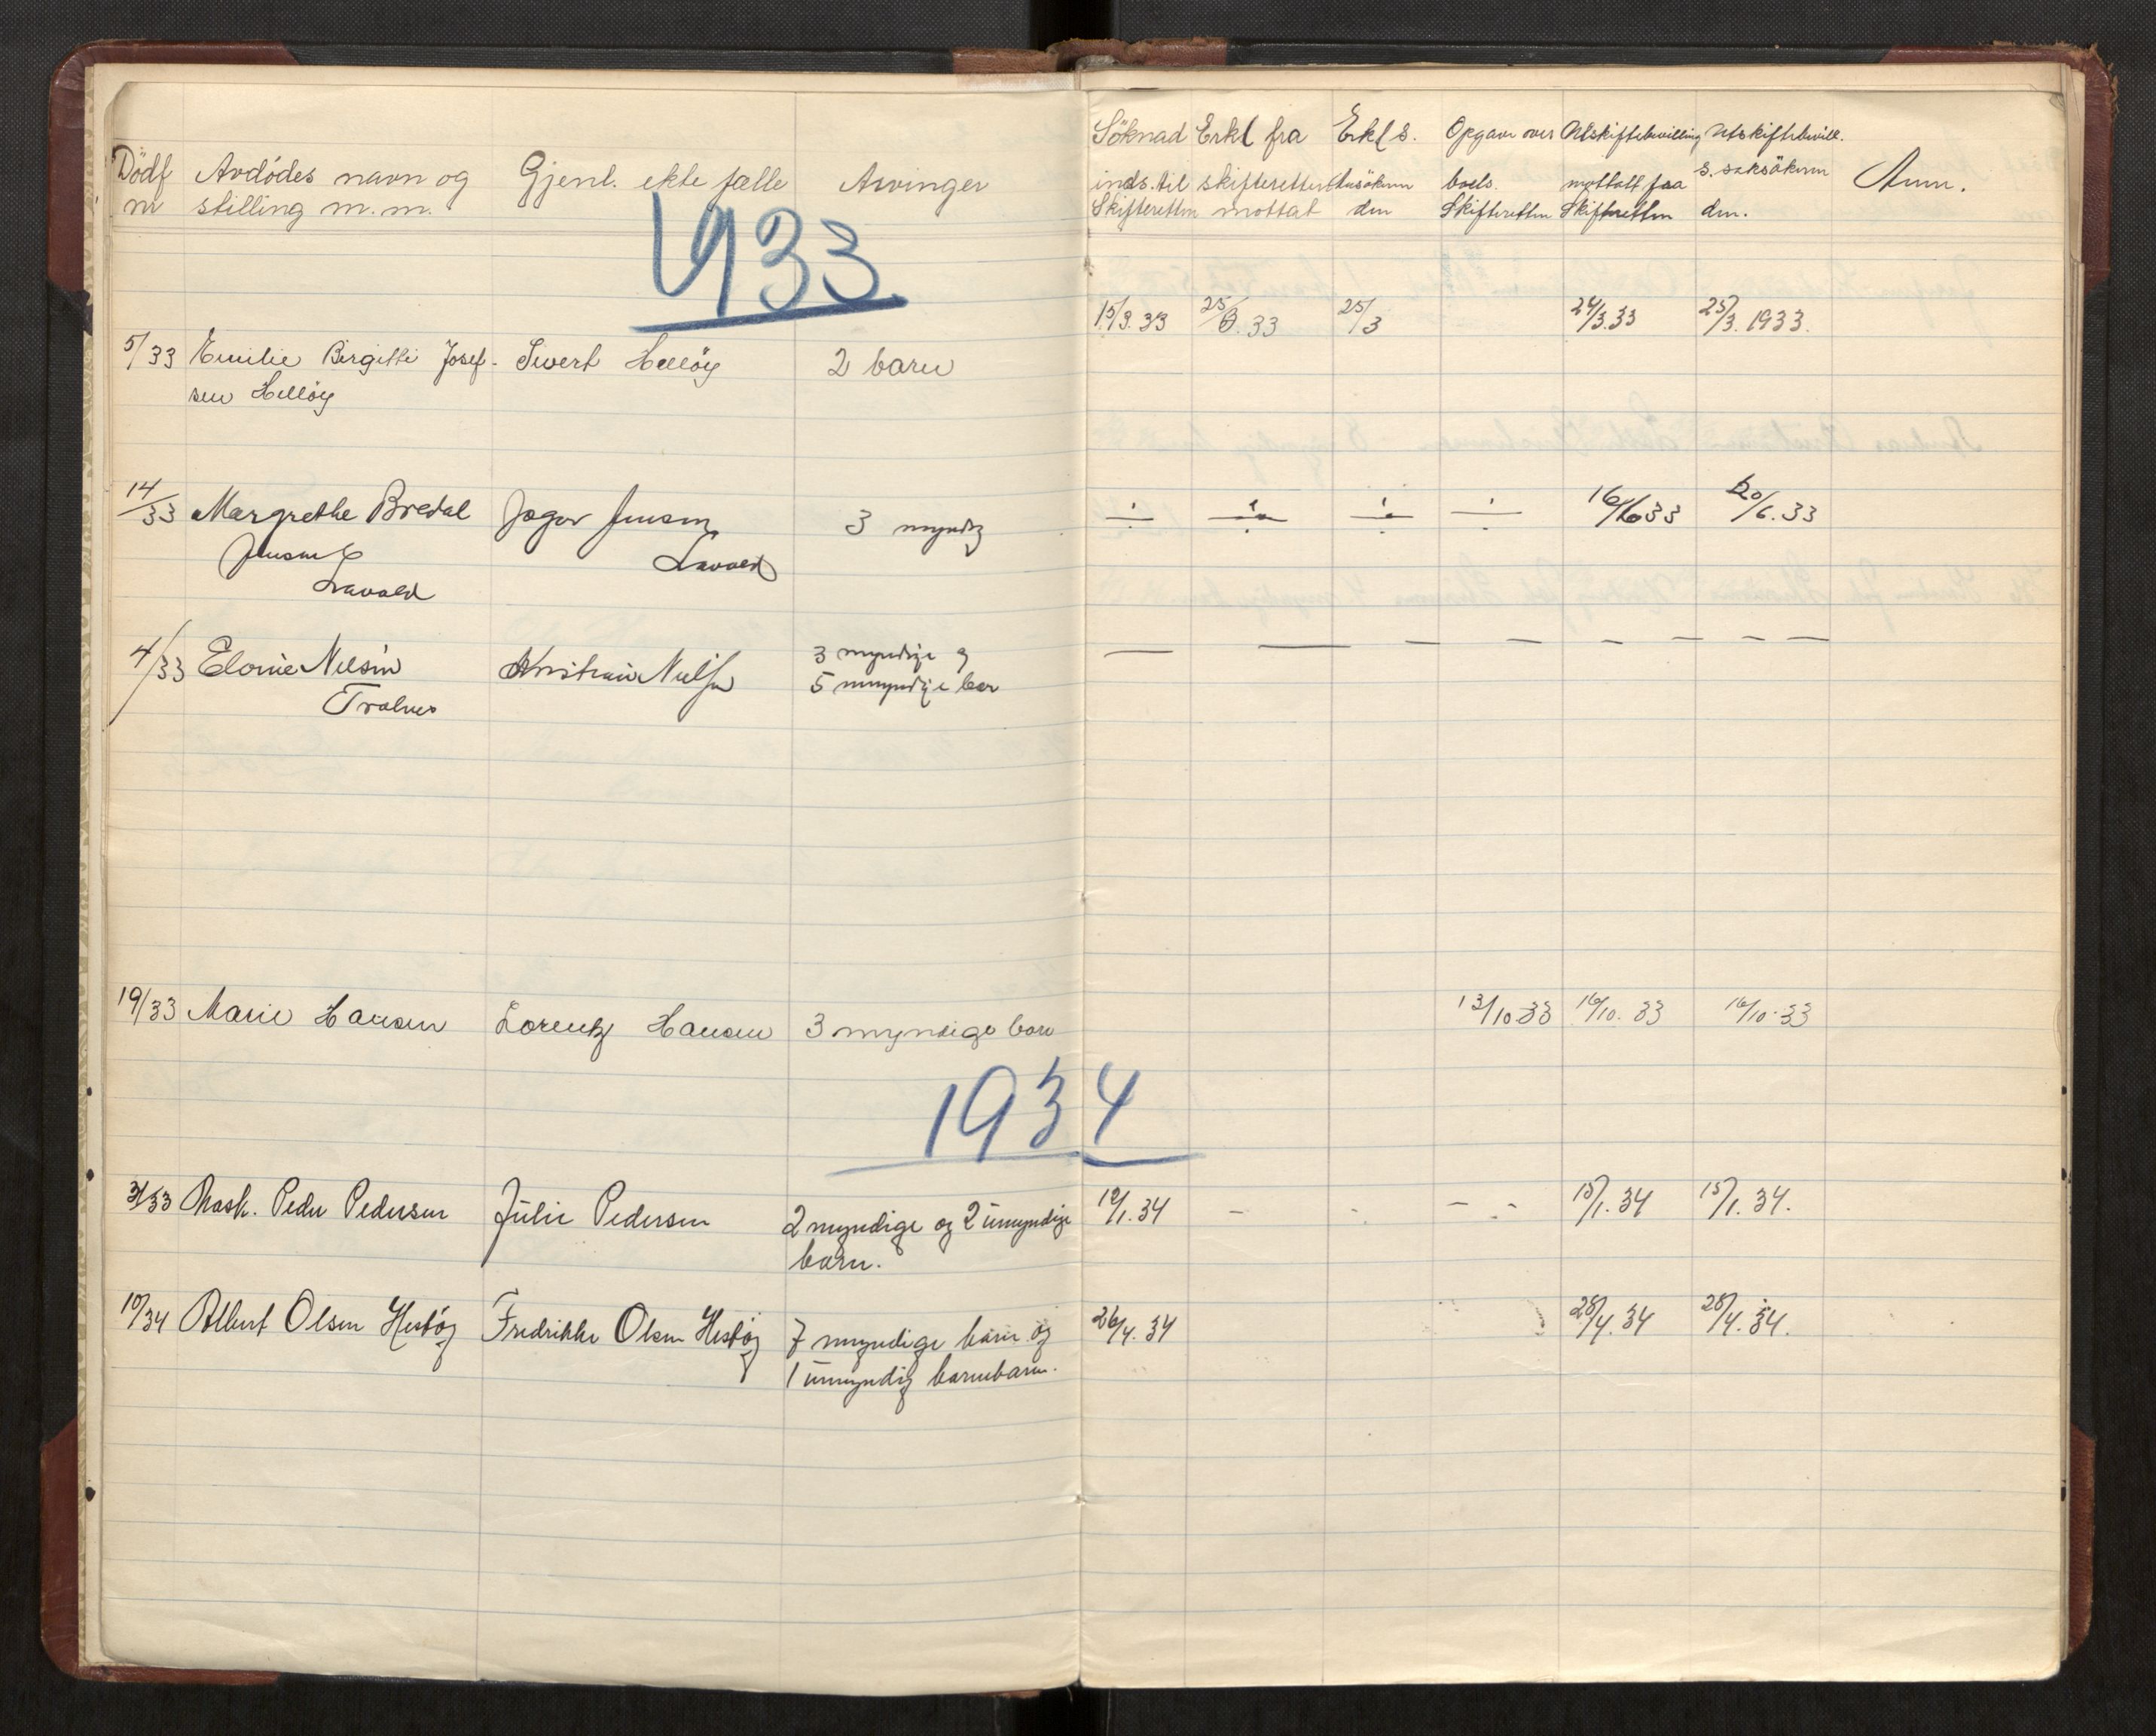 Dödf Avdödes navn og Gjenl. ekte fælle Arvinger
nr stilling m.m.
Söknad Erkl fra Erkl s. Opgave over Uskiftebevilling Uskiftebevill.
inds. til skifteretten ansökeren boets mottatt fra s. ansökeren Anm.
Skifteretten mottat den Skifteretten Skifteretten den.
1933
15/3.33 25/3.33 25/3 24/3.33 25/3.1933.
5/33 Emilie Birgitte Josef- Sivert Hellöy 2 barn
sen Hellöy
14/33 Margrethe Bredal Jensen 3 myndig ÷ ÷ ÷ ÷ 16/6 33 20/6.33
Jensen Lavold
Lavold
4/33 Nilsen Kristian Nilsen 3 myndige og — — — — — — — —
5 umyndige barn
19/33 Marie Hansen Lorentz Hansen 3 myndige barn 13/10-33 16/10.33 16/10.33
1934
31/33 Mask. Peder Pedersen Julie Pedersen 2 myndige og 2 umyndige 12/1.34 - - - - 15/1.34 15/1.34.
barn.
10/34 Albert Olsen Hestöy Fredrikke Olsen Hestöy 7 myndige barn og 26/4.34 28/4.34 28/4.34.
1 umyndig barnebarn.